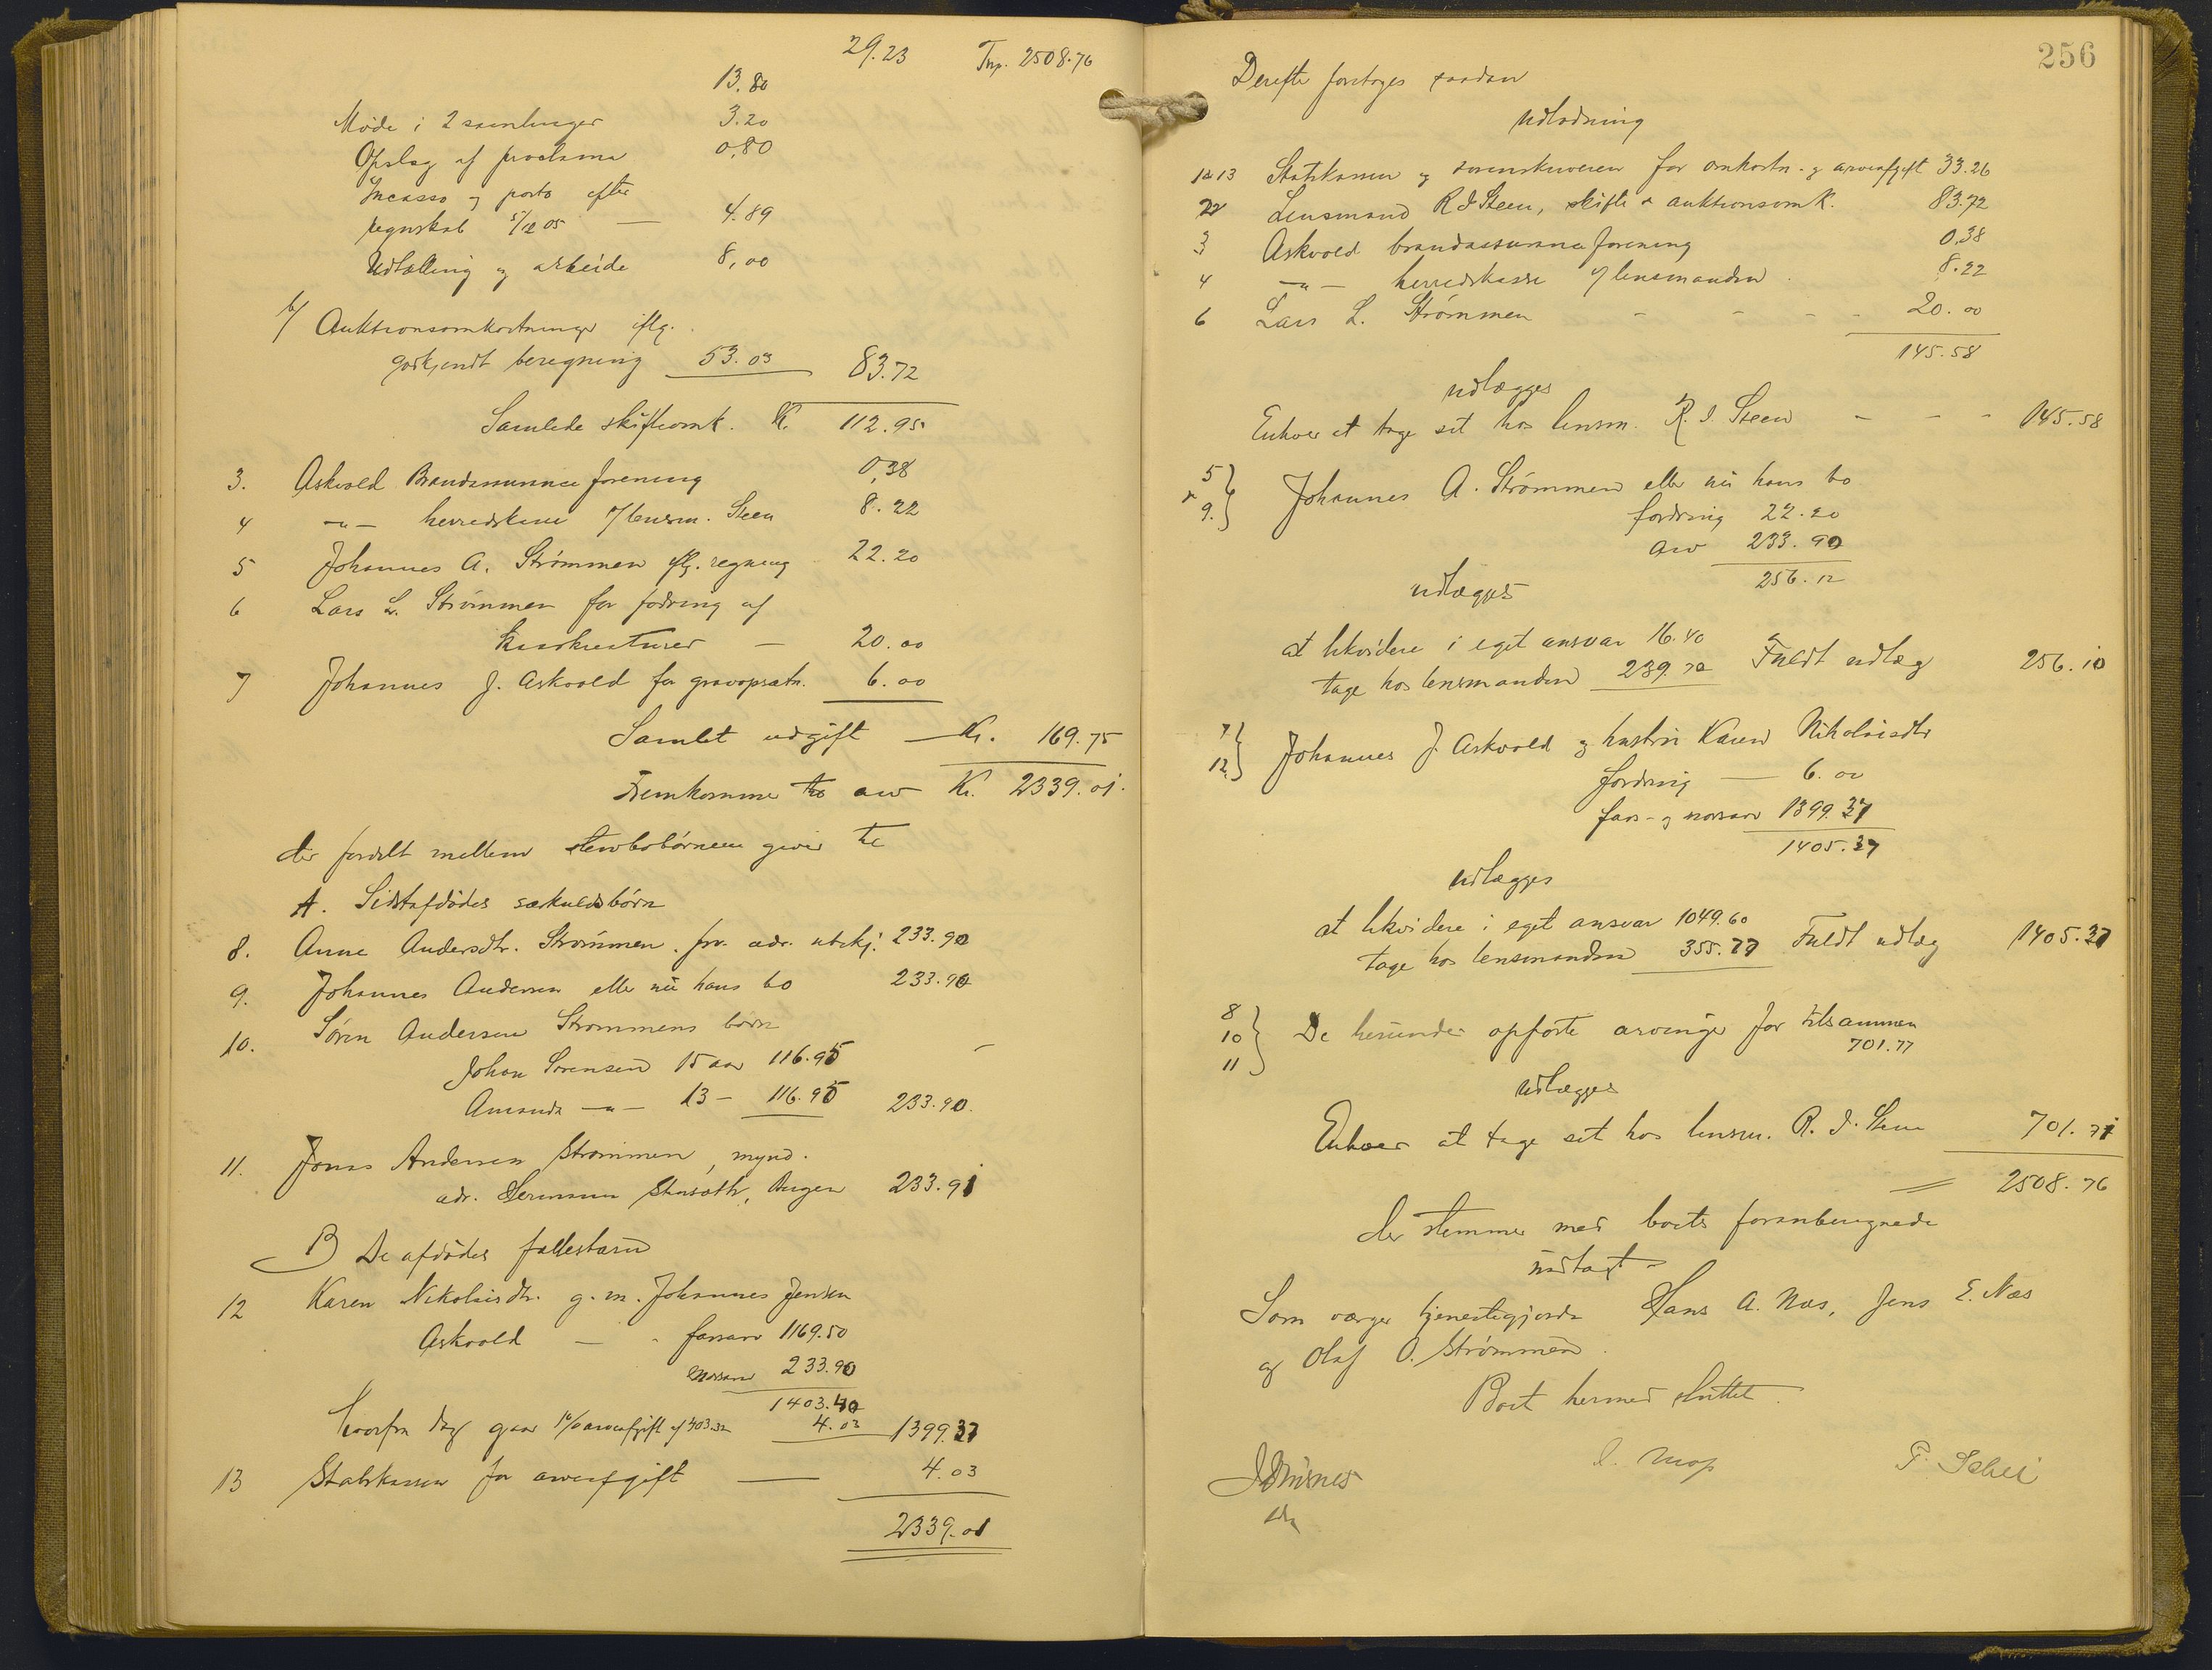 29.23 Trsp. 2508.76
13.80
Møde i 2 samlinger 3.20
Opslag af proclama 0,80
Incasso og porto efter
regnskab 5/12 05 — 4.89
Udtælling og arbeide 8,00
b/ Auktionsomkostninger iflg.
godkjendt beregning 53.03 83.72
Samlede skifteomk. K. 112.95
3. Askvold Brandassurance forening 0,38
4 —"— herredskasse v/ lensm. Steen 8.22
5 Johannes A. Strømmen iflg. regning 22.20
6 Lars L. Strømmen for fodring af
kreaturer — 20.00
7 Johannes J. Askvold for gravopsætn. 6.00
Samlet udgift — Kr. 169.75
Fremkomme til arv Kr. 2339.01.
der fordelt mellem stervbobørnene giver til
A. Sidstafdødes særkuldsbørn
8. Anne Andersdtr. Strømmen. frv. adr. ubekj. 233.90
9. Johannes Andersen eller nu hans bo 233.90
10. Søren Andersen Strømmens børn
Johan Sørensen 15 aar 116.95 —
Amanda —"— 13 — 116.95 233.90.
11. Jonas Andersen Strømmen, mynd.
adr. Bergen 233.91
B) De afdødes fællesbarn
12 Karen Nikolaisdtr. g. m. Johannes Jensen
Askvold — - farsarv 1169.50
morsarv 233.90
1403.40
hvorfra dog gaar 1% arveafgift af 403.32 4.03 1399.37
13 Statskassen for arveafgift — 4.03
2339.01
256
Derefter foretoges saadan
Udlodning
1 & 13 Statskassen og sorenskriveren for omkostn. og arveafgift 33.26
2 Lensmand R I Steen, skifte & auktionsomk. 83.72
3 Askvold brandassuranceforening 0,38
4 —"— herredskasse v/ lensmanden. 8.22
6 Lars L. Strømmen - - - - 20.00
145.58
udlægges
Enhver at tage sit hos lensm. R. I. Steen - - - 145.58
5 & 9. } Johannes A. Strømmen eller nu hans bo
fordring 22.20
arv 233.90
256.10
udlægges
at likvidere i eget ansvar 16.40
tage hos lensmanden 239.70 Fuldt udlæg 256.10
7 12 } Johannes J. Askvold og hustru Karen Nikolaisdtr
fordring — 6.00
fars- og morsarv 1399.37
1405.37
udlægges
at likvidere i eget ansvar 1049.60
tage hos lensmanden 355.77 Fuldt udlæg 1405.37
8 10 11 } De herunder opførte arvinger for tilsammen
701.71
udlægges
Enhver at tage sit hos lensm. R. I. Steen 701.71
2508.76
der stemmer med boets foranberegnede
indtægt -
Som værger tjenestegjorde Hans A. Næs, Jens E. Næs
og Olaf O. Strømmen.
Boet hermed sluttet.